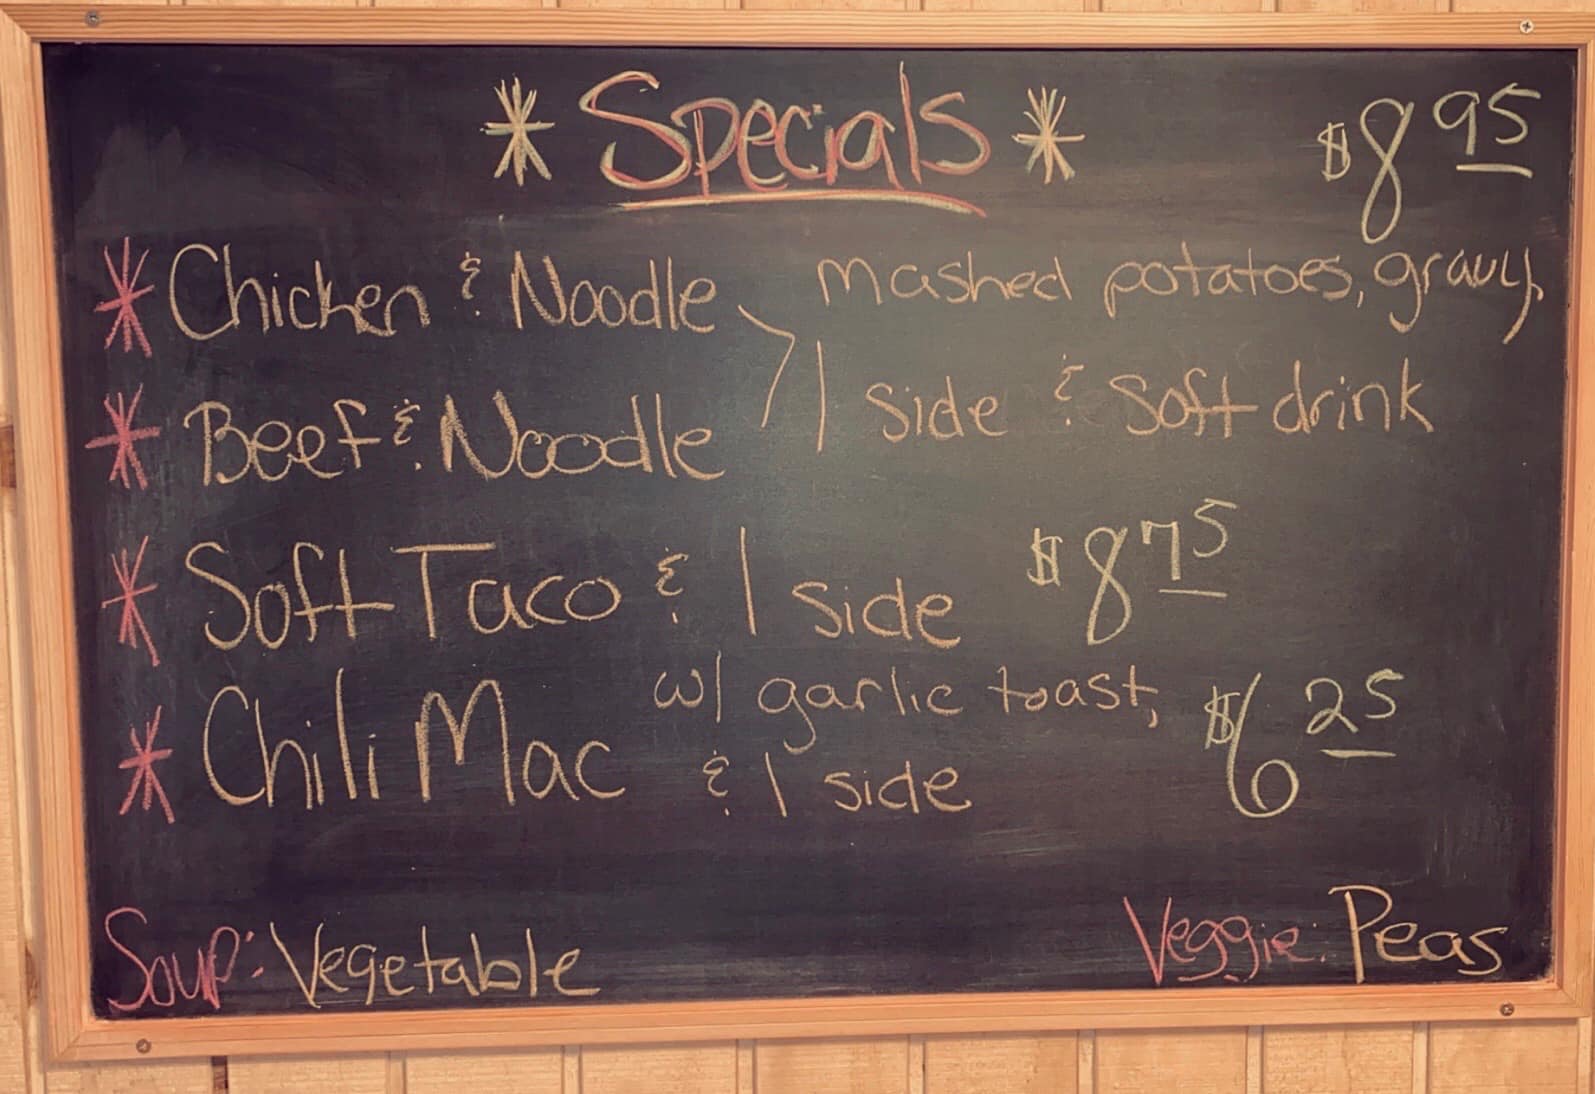 * Specials * $8 95
* Chicken & Noodle mashed potatoes, gravy,
* Beef & Noodle 1 side & soft drink
* Soft Taco & 1 side $8 75
* Chili Mac w/ garlic toast, $6 25
& 1 side
Soup: Vegetable Veggie: Peas